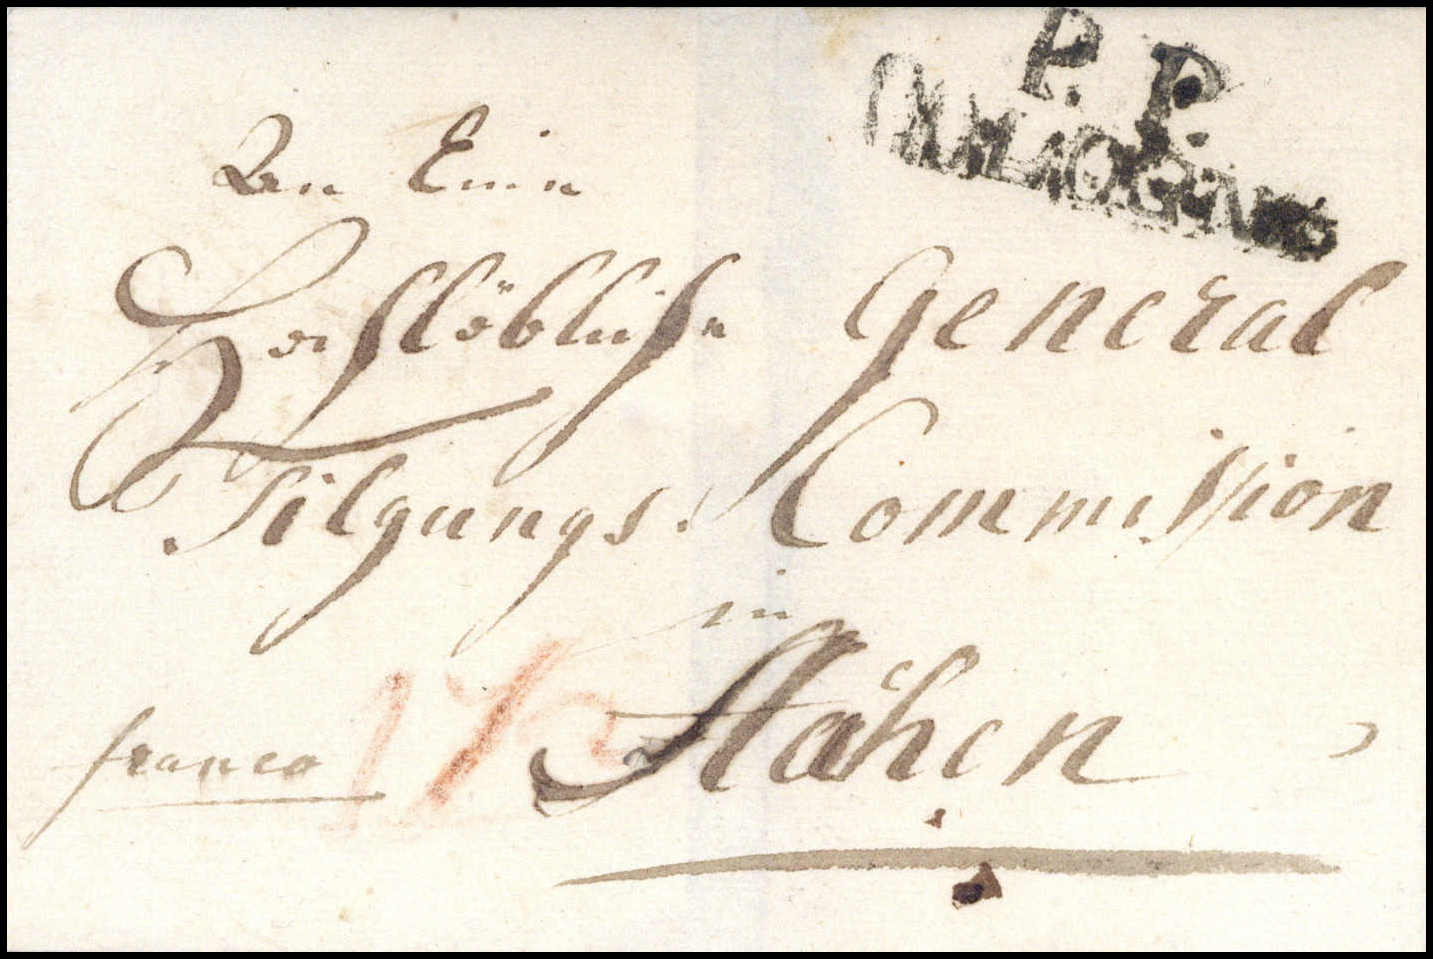 P. P.
COLOGNE
An Eine
Hochlöbliche General
Tilgungs Commission
in
Aachen
franco